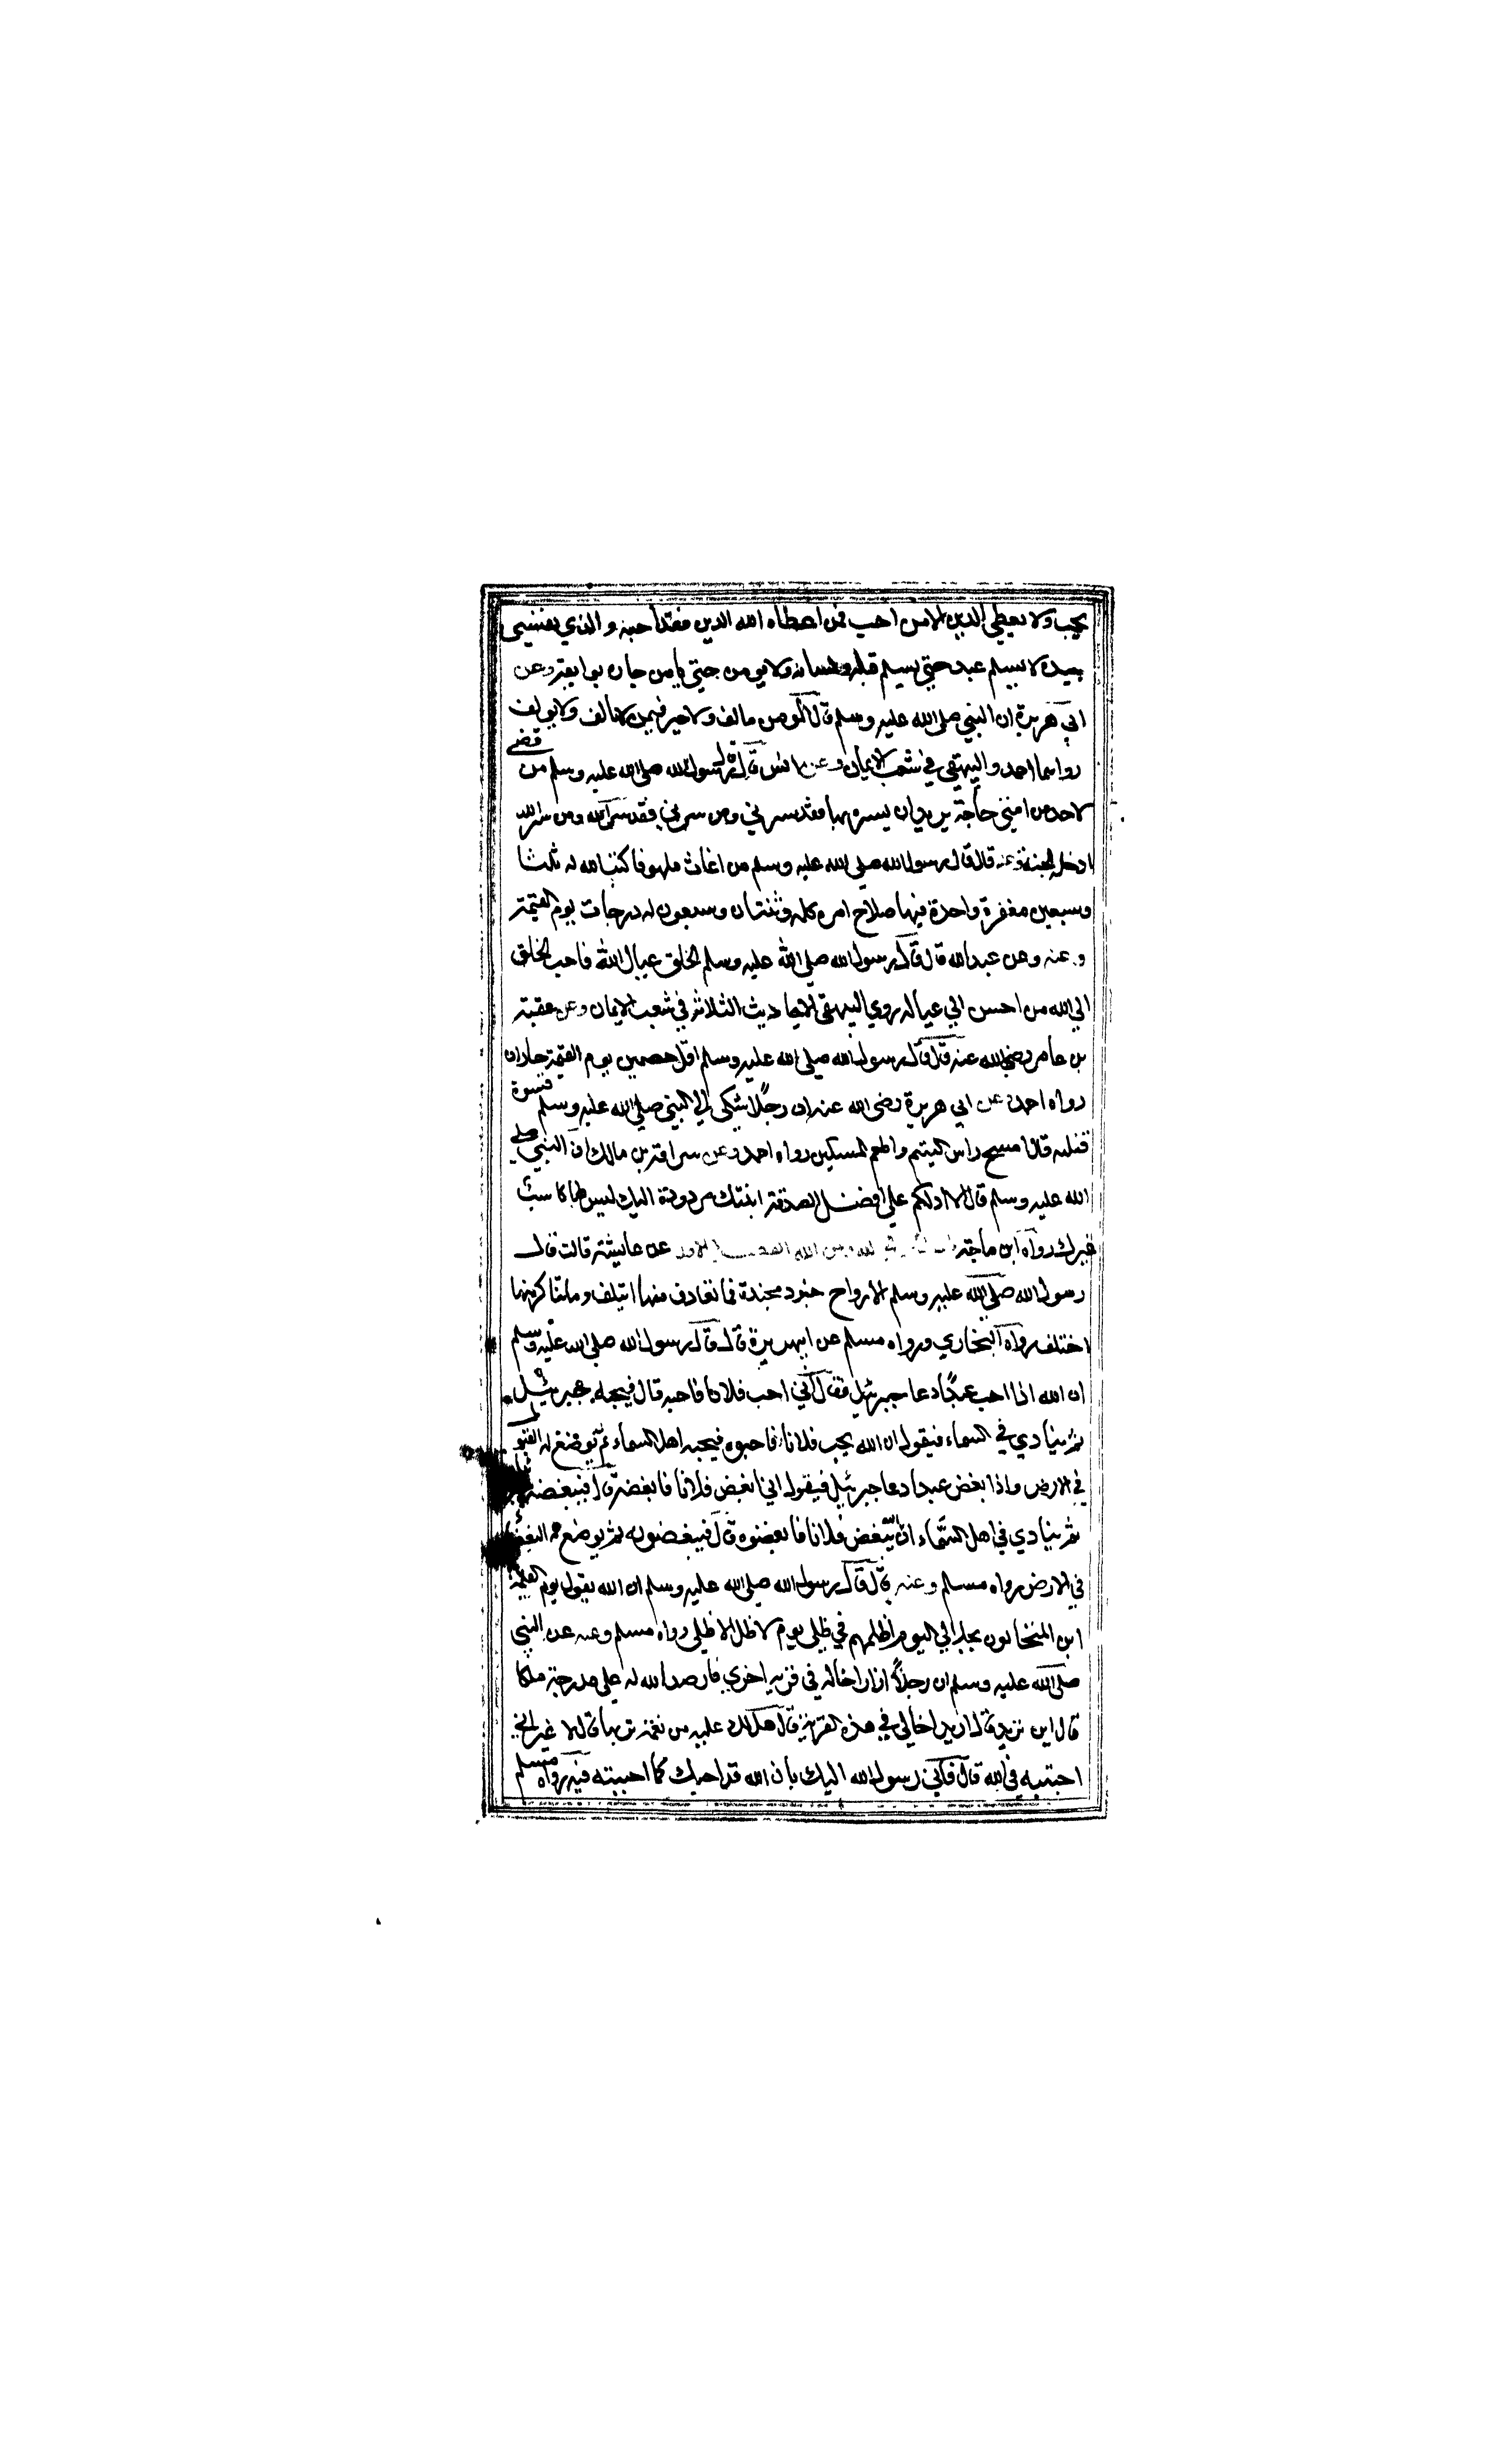 يحب ولا يعطي الدين الا من احب فمن اعطاه الله الدين فقد احبه والذي نفسي
بيده لا يسلم عبد حتى يسلم قلبه ولسانه ولا يومن حتى يامن جاره بوايقه وعن
ابي هريرة ان النبي صلى الله عليه وسلم قال المومن مالف ولا خير فيمن لا يالف ولا يولف
رواهما احمد والبيهقي في شعب الايمان وعن انس قال قال رسول الله صلى الله عليه وسلم من قضى
لاحد من امتي حاجة يريد ان يسره بها فقد سرني ومن سرني فقد سر الله ومن سر الله
ادخله الجنة وعنه قال قال رسول الله صلى الله عليه وسلم من اغاث ملهوفا كتب الله له ثلثا
وسبعين مغفرة واحدة فيها صلاح امره كله وثنتان وسبعون له درجات يوم القيمة
وعنه وعن عبد الله قال قال رسول الله صلى الله عليه وسلم الخلق عيال الله فاحب الخلق
الى الله من احسن الى عياله روي البيهقي الاحاديث الثلاثة في شعب الايمان وعن عقبة
بن عامر رضي الله عنه قال قال رسول الله صلى الله عليه وسلم اول خصمين يوم القيمة جاران
رواه احمد عن ابي هريرة رضى الله عنه ان رجلا شكى الى النبي صلى الله عليه وسلم قسوة
قلبه قال امسح راس اليتيم واطعم المسكين رواه احمد وعن سراقة بن مالك ان النبي صلى
الله عليه وسلم قال الا ادلكم على افضل الصدقة ابنتك مردودة اليك ليس لها كاسب
غيرك رواه ابن ماجة الحب في الله ومن الله الفصل الاول عن عايشة قالت قال
رسول الله صلى الله عليه وسلم الارواح جنود مجندة فما تعارف منها ايتلف وما تناكر منها
اختلف رواه البخاري ورواه مسلم عن ابيهريرة قال قال رسول الله صلى الله عليه وسلم
ان الله اذا احب عبدا دعا جبرئيل فقال اني احب فلانا فاحبه قال فيحبه جبرئيل
ثم ينادي في السماء فيقول ان الله يحب فلانا فاحبوه فيحبه اهل السماء ثم يوضع له القبول
في الارض واذا بغض عبدا دعا جبرئيل فيقول اني ابغض فلانا فابغضه قال فيبغضه
ثم ينادي في اهل السماء ان الله يبغض فلانا فابغضوه قال فيبغضونه ثم يوضع له البغضاء
في الارض رواه مسلم وعنه قال قال رسول الله صلى الله عليه وسلم ان الله يقول يوم القيمة
اين المتحابون بجلالي اليوم اظلهم في ظلي يوم لا ظل الا ظلي رواه مسلم وعنه عن النبي
صلى الله عليه وسلم ان رجلا زار اخا له في قرية اخري فارصد الله له على مدرجته ملكا
قال اين تريد قال اريد اخا لي في هذه القرية قال هل لك عليه من نعمة تربها قال لا غير اني
احببته في الله قال فاني رسول الله اليك بان الله قد احبك كما احببته فيه رواه مسلم